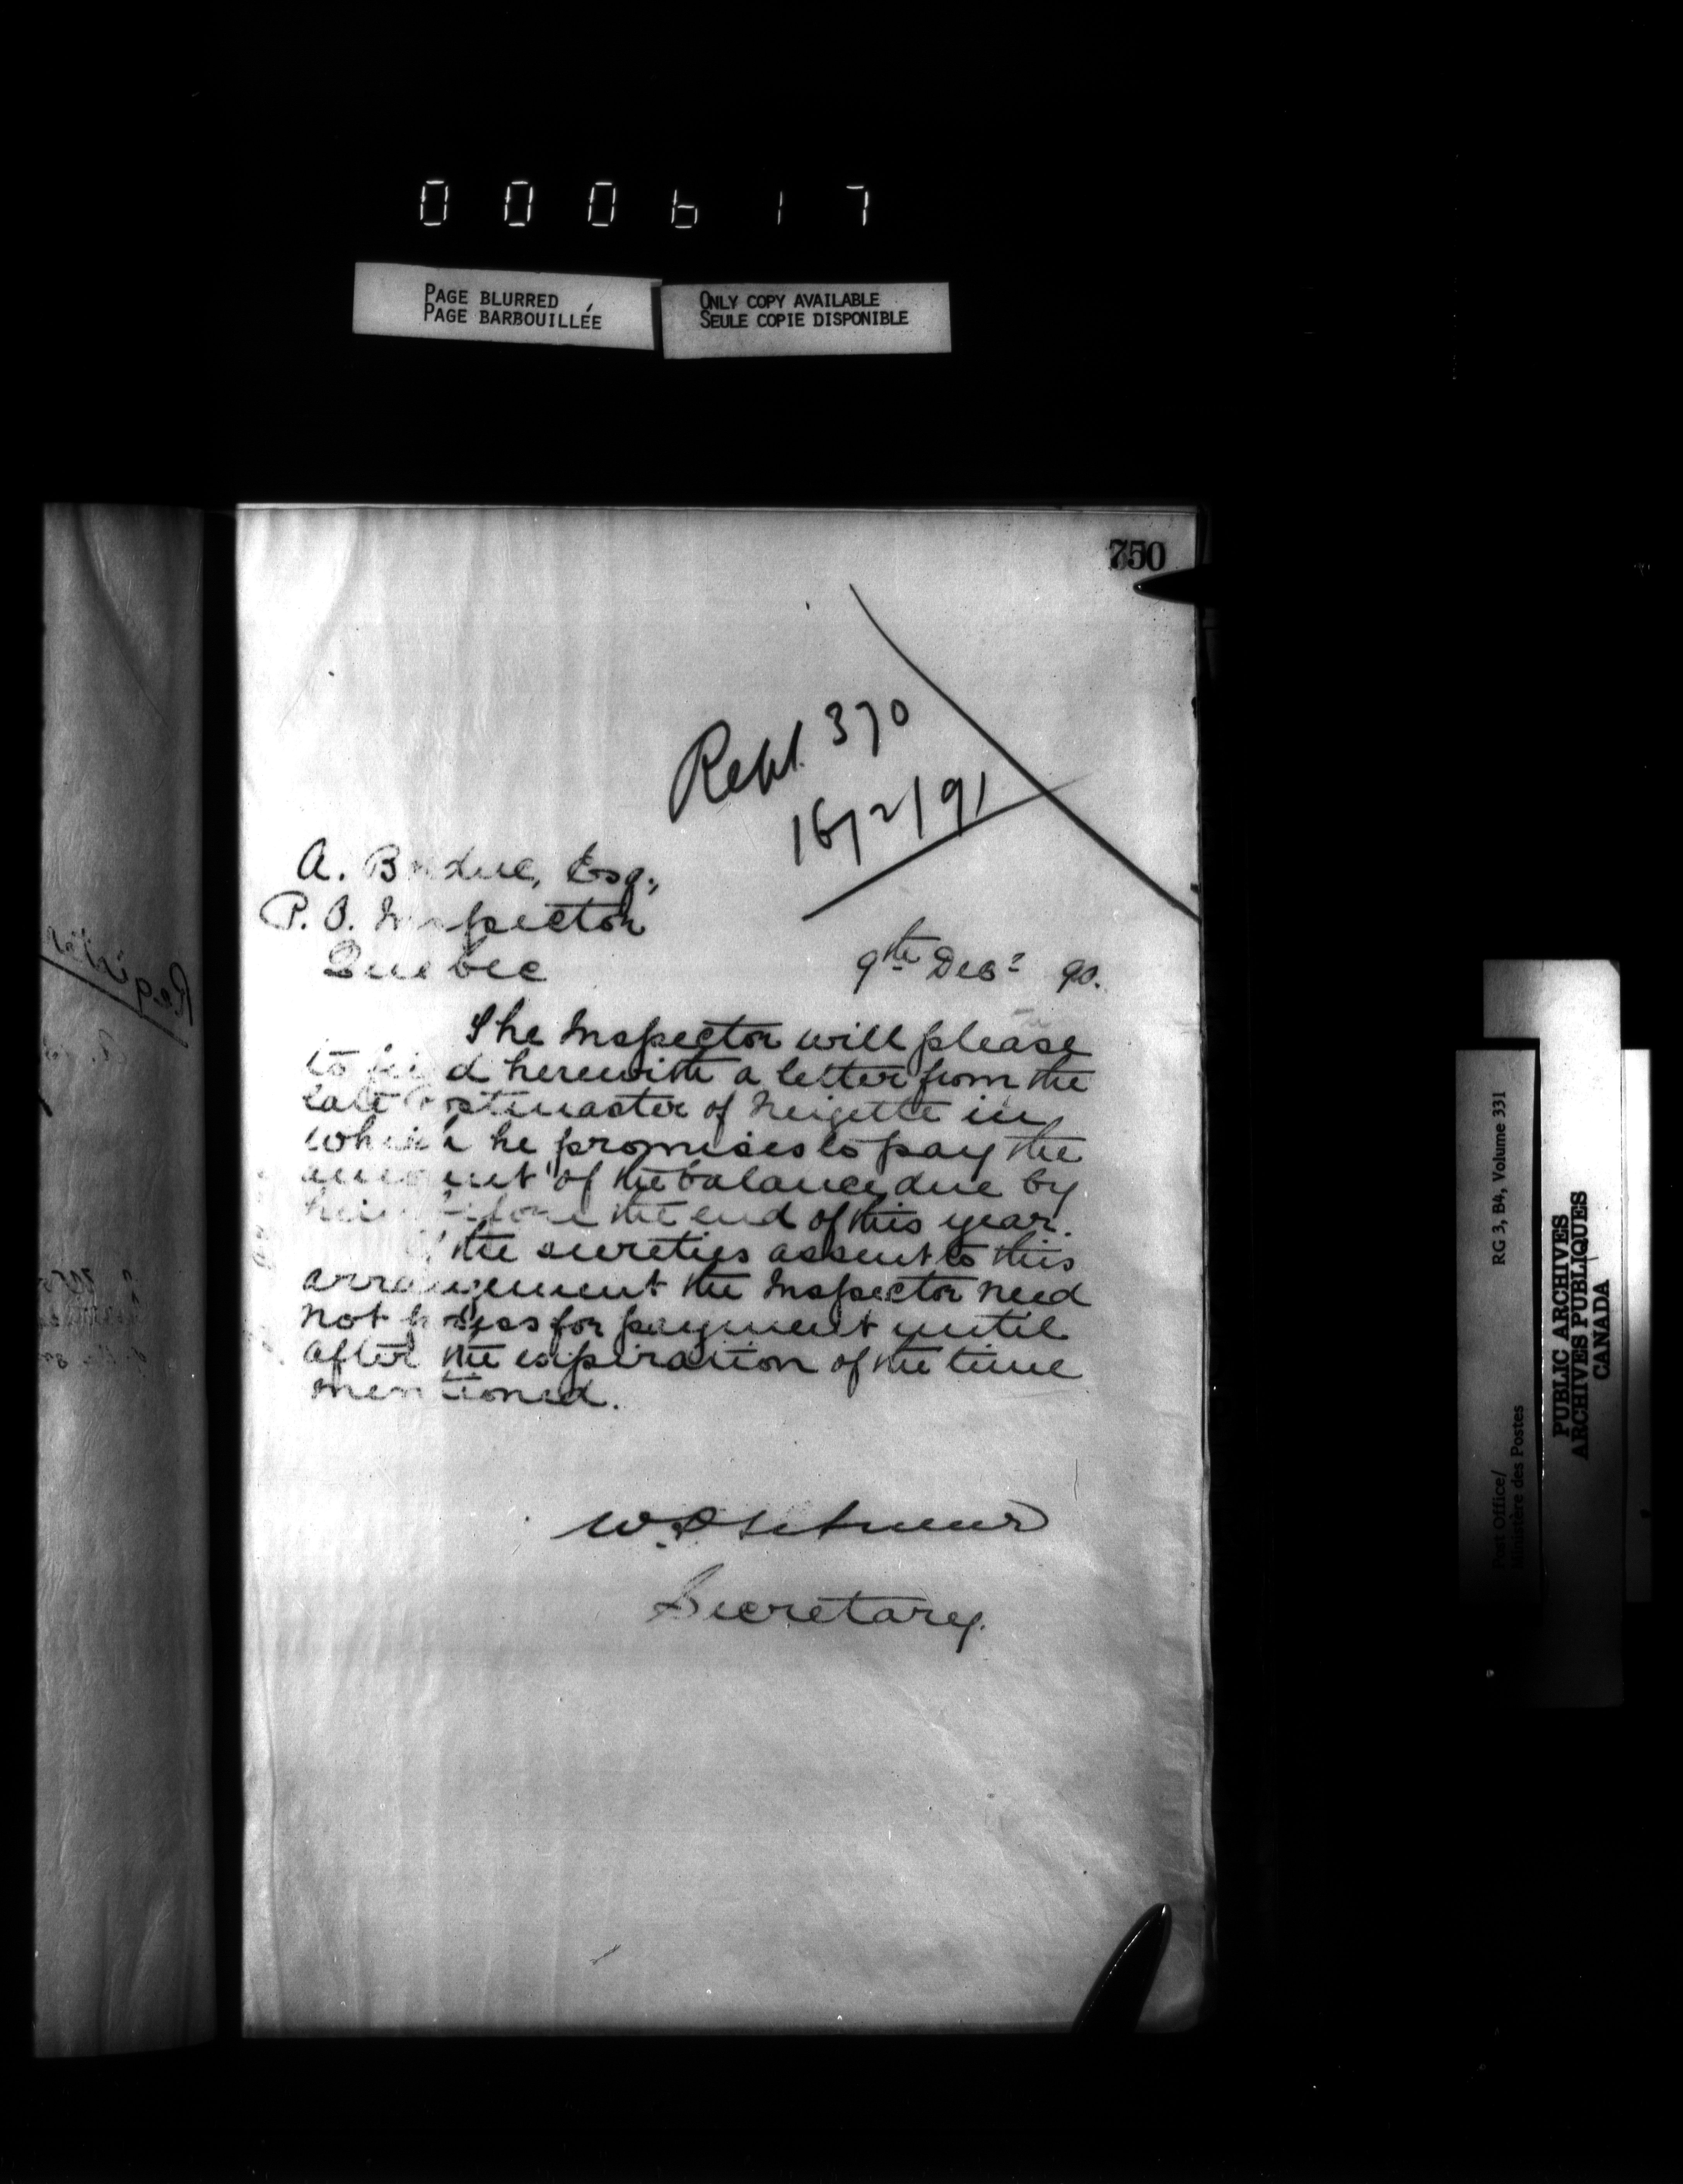 000617
PAGE BLURRED
PAGE BARBOUILLÉE
ONLY COPY AVAILABLE
SEULE COPIE DISPONIBLE
750
Rept. 370
16/2/91
A. Bolduc, Esq.,
P. O. Inspector
Quebec
9th Decr 90.
The Inspector will please
to find herewith a letter from the
late Postmaster of Neigette in
which he promises to pay the
amount of the balance due by
him before the end of this year.
If the sureties assent to this
arrangement the Inspector need
not press for payment until
after the expiration of the time
mentioned.
Secretary.
RG 3, B4, Volume 331
Post Office/
Ministère des Postes
PUBLIC ARCHIVES
ARCHIVES PUBLIQUES
CANADA